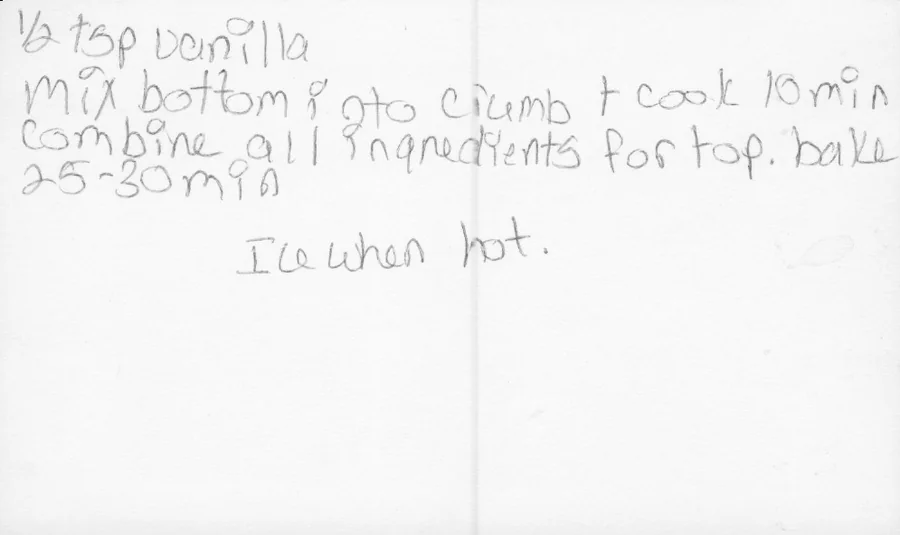 1/2 tsp vanilla
mix bottom into crumb + cook 10 min
combine all ingredients for top. bake
25-30 min
Ice when hot.